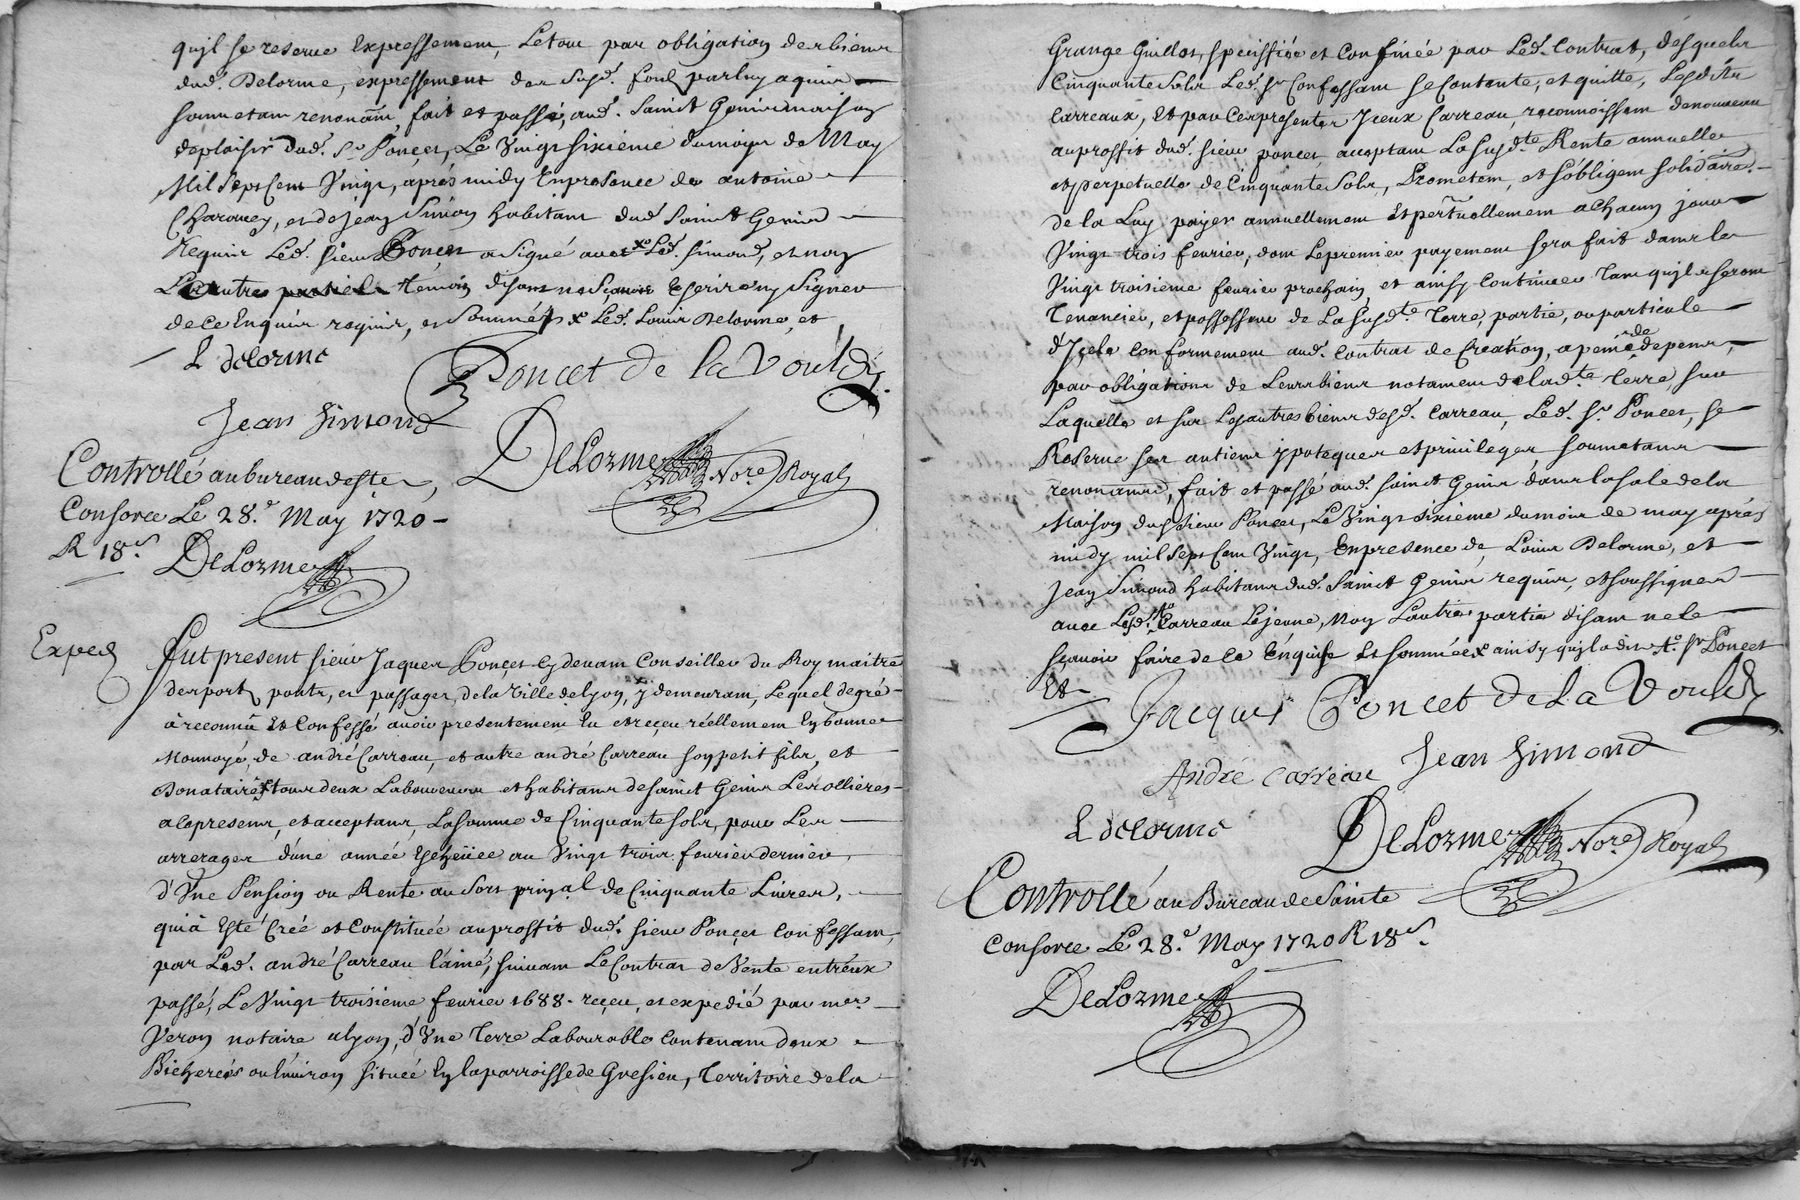 quil se reserve Expressement, Le tout par obligation des biens
dud. Delorme, expressement des susd. fonds par luy aquis
soumetant renonant, fait et passé, aud. Sainct Genis maison
de plaisir dud. Sr Poncet, Le Vingt sixieme du mois de May
Mil Sept Cent Vingt, aprés midy En presence de antoine
Charavey, et de Jean Simon habitant dud. Sainct Genis
Requis Led. sieur Poncet a signé avec x Led. Simond, et non
L'autre temoin disant ne Scavoir Escrire ny Signer
de ce Enquis requis, et Sommé x Led. Louis Delorme, et
L delorme
Poncet de la Voulte
Jean Simond
DeLorme Nore Royal
Controllé au bureau de Ste
Consorce Le 28.e May 1720
R 18 s.
DeLorme
Exped
Fut present sieur Jaques Poncet Cy devant Conseiller du Roy maitre
des ports ponts, et passages de la Ville de Lyon, y demeurant, Lequel de gré
à reconnu Et Confessé avoir presentement Eu et reçeu réellement En bonne
Monnoye, de andré Carreau, et autre andré Carreau son petit fils, et
Donataire x tous deux Laboureurs et habitans de Sainct Genis Les ollieres
a ce presens, et acceptans, La Somme de Cinquante Sols, pour Les
arrerages d'une année Escheüee au Vingt trois fevrier dernier,
d'Une Pension ou Rente au Sort prinçal de Cinquante Livres,
qui à Esté Créé et Constituée au proffit dud. sieur Ponçet Confessant,
par Led. andré Carreau l'ainé, suivant Le Contrat de Vente entréux
passé, Le Vingt troisieme fevrier 1688. reçeu, et expedié par me
Veron notaire a Lyon, d'Une Terre Labourable Contenant deux
Bicherées ou Environ située En la parroisse de Gresieu, Territoire de la
Grange Guillot, speciffiée et Confinée par Led. Contrat, desquels
Cinquante Sols Led. Sr Confessant se Contente, et quitte, Lesdits
Carreaux, Et par Ces presentes Jceux Carreau, reconnoissent de nouveau
au proffit dud. sieur poncet acceptant La susdte Rente annuelle
et perpetuelle de Cinquante Sols, Prometent, et s'obligent solidaire.
de la Luy payer annuellement Et perpetuellement a Chacun jour
Vingt trois fevrier, dont Le premier payement sera fait dans le
Vingt troisieme fevrier prochain, et ainsy Continuer Tant quils seront
Tenanciers, et possesseurs de La susdte Terre, partie, ou particule
d'Jcelle Conformement aud. Contrat de Creation, a peine de de depens,
par obligations de Leurs biens notament de ladte Terre, sur
Laquelle et sur Les autres biens desd. Carreau, Led. Sr Poncet, se
Reserve ses antiens ypoteques et privileges soumetans
renonçans, fait et passé aud. Sainct Genis dans la sale de la
Maison dud Sieur Poncet, Le Vingt sixieme du mois de may aprés
midy mil Sept Cent Vingt, En presence de, Louis Delorme, et
Jean Simond habitans dud. Sainct Genis requis, et soussignés
avec Led. Carreau Lejeune, Non L'autre partie disant ne le
sçavoir faire de ce Enquise Et Sommée x ainsy quil a dit Sr Poncet
Et
Jacques Poncet de La Voulte
André Carreau
Jean Simond
L delorme
DeLorme Nore Royal
Controllé au Bureau de Sainte
Consorce Le 28.e May 1720 R 18 s.
DeLorme